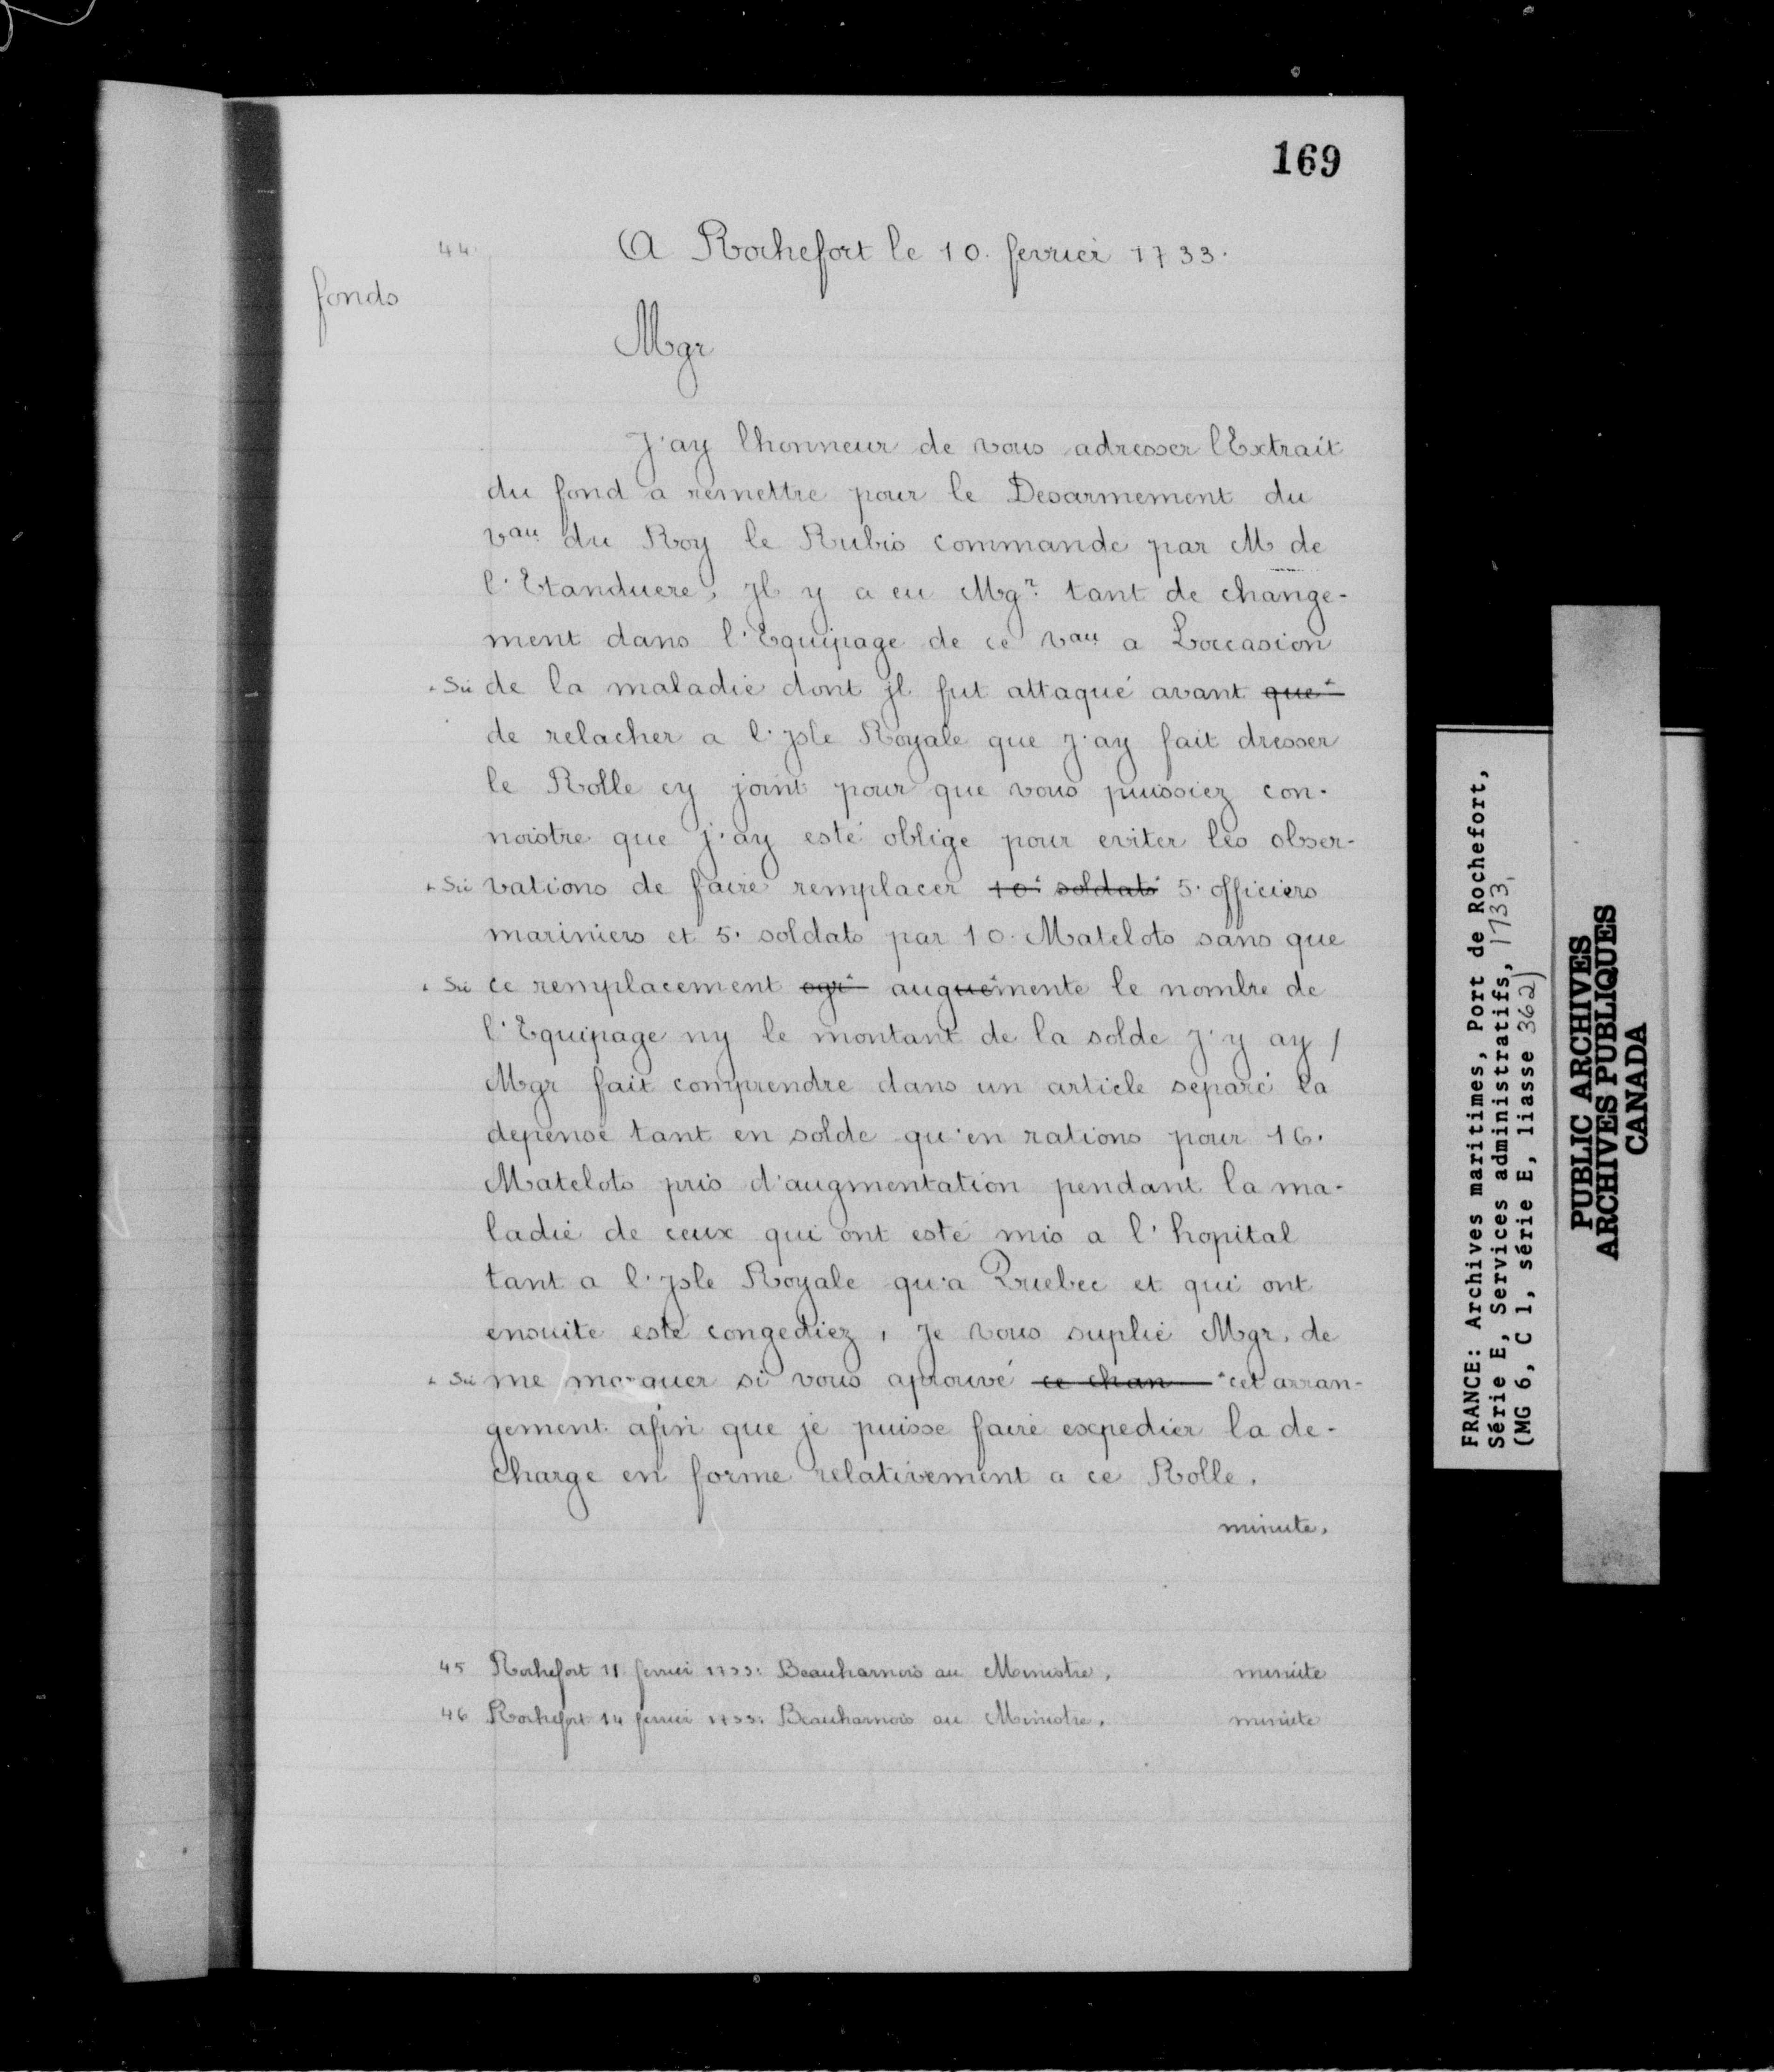 169
44.
A Rochefort le 10. fevrier 1733.
fonds
Mgr
J'ay lhonneur de vous adresser lExtrait
du fond a remettre pour le Desarmement du
vau du Roy le Rubis commande par M de
l'Etanduere, jl y a eu Mgr. tant de change-
ment dans l'Equipage de ce vau a Loccasion
+ Sic de la maladie dont jl fut attaqué avant que+
de relacher a l'jsle Royale que j'ay fait dresser
le Rolle cy joint pour que vous puissiez con-
noistre que j'ay esté oblige pour eviter les obser-
+ Sic vations de faire remplacer 10+ soldats+ 5. officiers
mariniers et 5. soldats par 10. Matelots sans que
+ Sic ce remplacement ogr+ auguemente le nombre de
l'Equipage ny le montant de la solde j'y ay /
Mgr fait comprendre dans un article separé la
depense tant en solde qu'en rations pour 16.
Matelots pris d'augmentation pendant la ma-
ladie de ceux qui ont esté mis a l'hopital
tant a l'jsle Royale qu'a Quebec et qui ont
ensuite esté congediez, je vous suplie Mgr. de
+ Sic me marquer si vous aprouvé ce chan +cet arran-
gement afin que je puisse faire expedier la de-
charge en forme relativement a ce Rolle.
minute.
45 Rochefort 11 fevrier 1733: Beauharnois au Ministre. minute
46 Rochefort 14 fevrier 1733: Beauharnois au Ministre. minute
FRANCE: Archives maritimes, Port de Rochefort,
Série E, Services administratifs, 1733,
(MG 6, C 1, série E, liasse 362)
PUBLIC ARCHIVES
ARCHIVES PUBLIQUES
CANADA